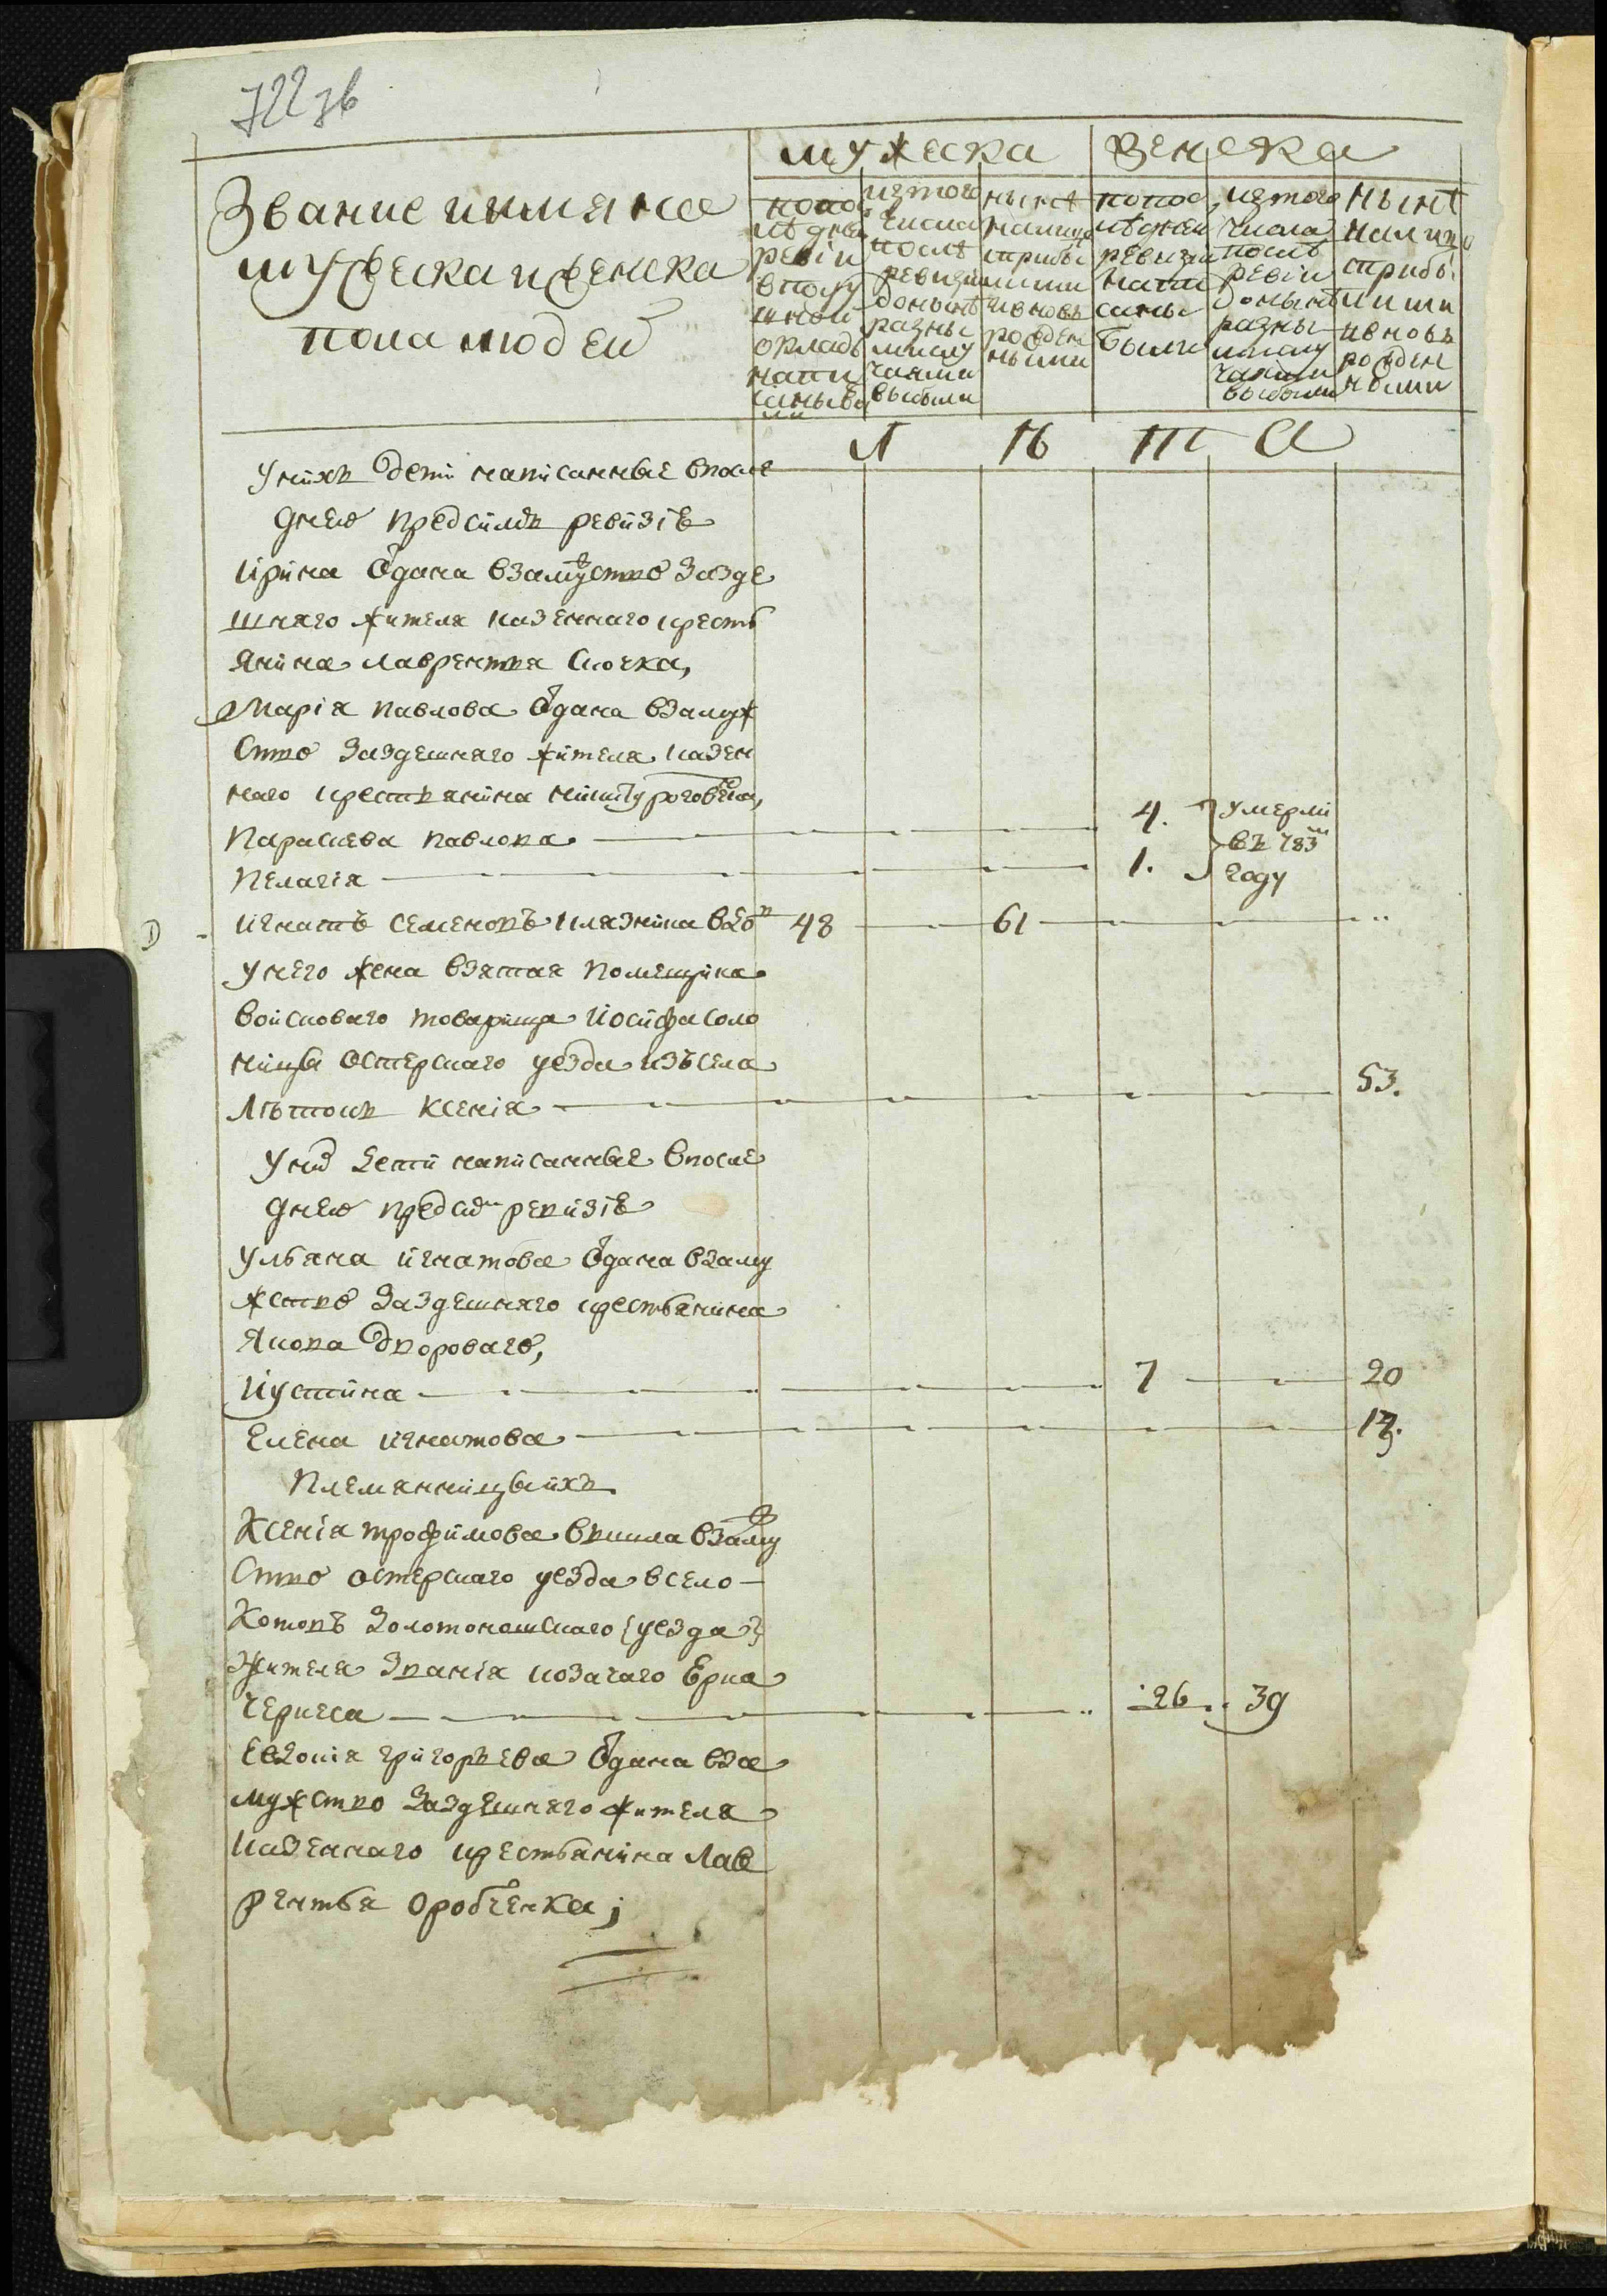 722 зв
мужеска женска
Звание иимяна
мужеска иженска
пола людей
попос
лѣдней
ревіи
вподу
шной
окладъ
напи
саныбы
ли
изтого
числа
послѣ
ревизии
донынѣ
разны
мислу
чаями
выбыли
нынѣ
налицо
сприбы
лими
ивновь
рожден
ными
попос
лѣдней
ревизии
напи
саны
были
изтого
числа
послѣ
ревіи
донынѣ
разны
мислу
чаями
выбыли
нынѣ
налицо
сприбы
лими
ивновь
рожден
ными
Л Ѣ Т А
Унихъ дети написанные впосле
днею предсимъ ревизіѣ
Ирина Отдана взамужство зазде
шняго жителя казенного кресть
янина лаврентья Сюека,
Марія павлова Отдана взамуж
ство заздешняго жителя казен
ного крестьянина никиту роговича,
Параскева павлова 4. умерли
въ 783м
Пелагія 1. году
Игнатъ семеновъ клязника вдов 48 61
унего жена взятая помещика
войскового товарища Иосифа соло
ницы остерского уезда изъсела
Лѣтокъ Ксенія 53.
Уних дети написанные впосле
днею предсим ревизіѣ
Ульяна игнатова Отдана взаму
жство заздешняго крестьянина
Якова дворового,
Иустина 7 20
Елена игнатова 13.
Племянницыихъ
Ксенія трофимова вышла взамуж
ство остерского уезда всело
Котовъ золотоношского {уезда}
Жителя званія козачаго Ерка
Черкеса 26. 39
Евдокія григорьева Отдана вза
мужство заздешняго жителя
казенного крестьянина Лав
рентья Оробченка;